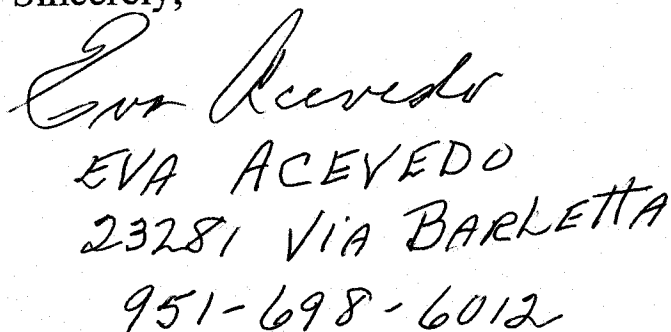 Sincerely,
Eva Acevedo
EVA ACEVEDO
23281 VIA BARLETTA
951-698-6012